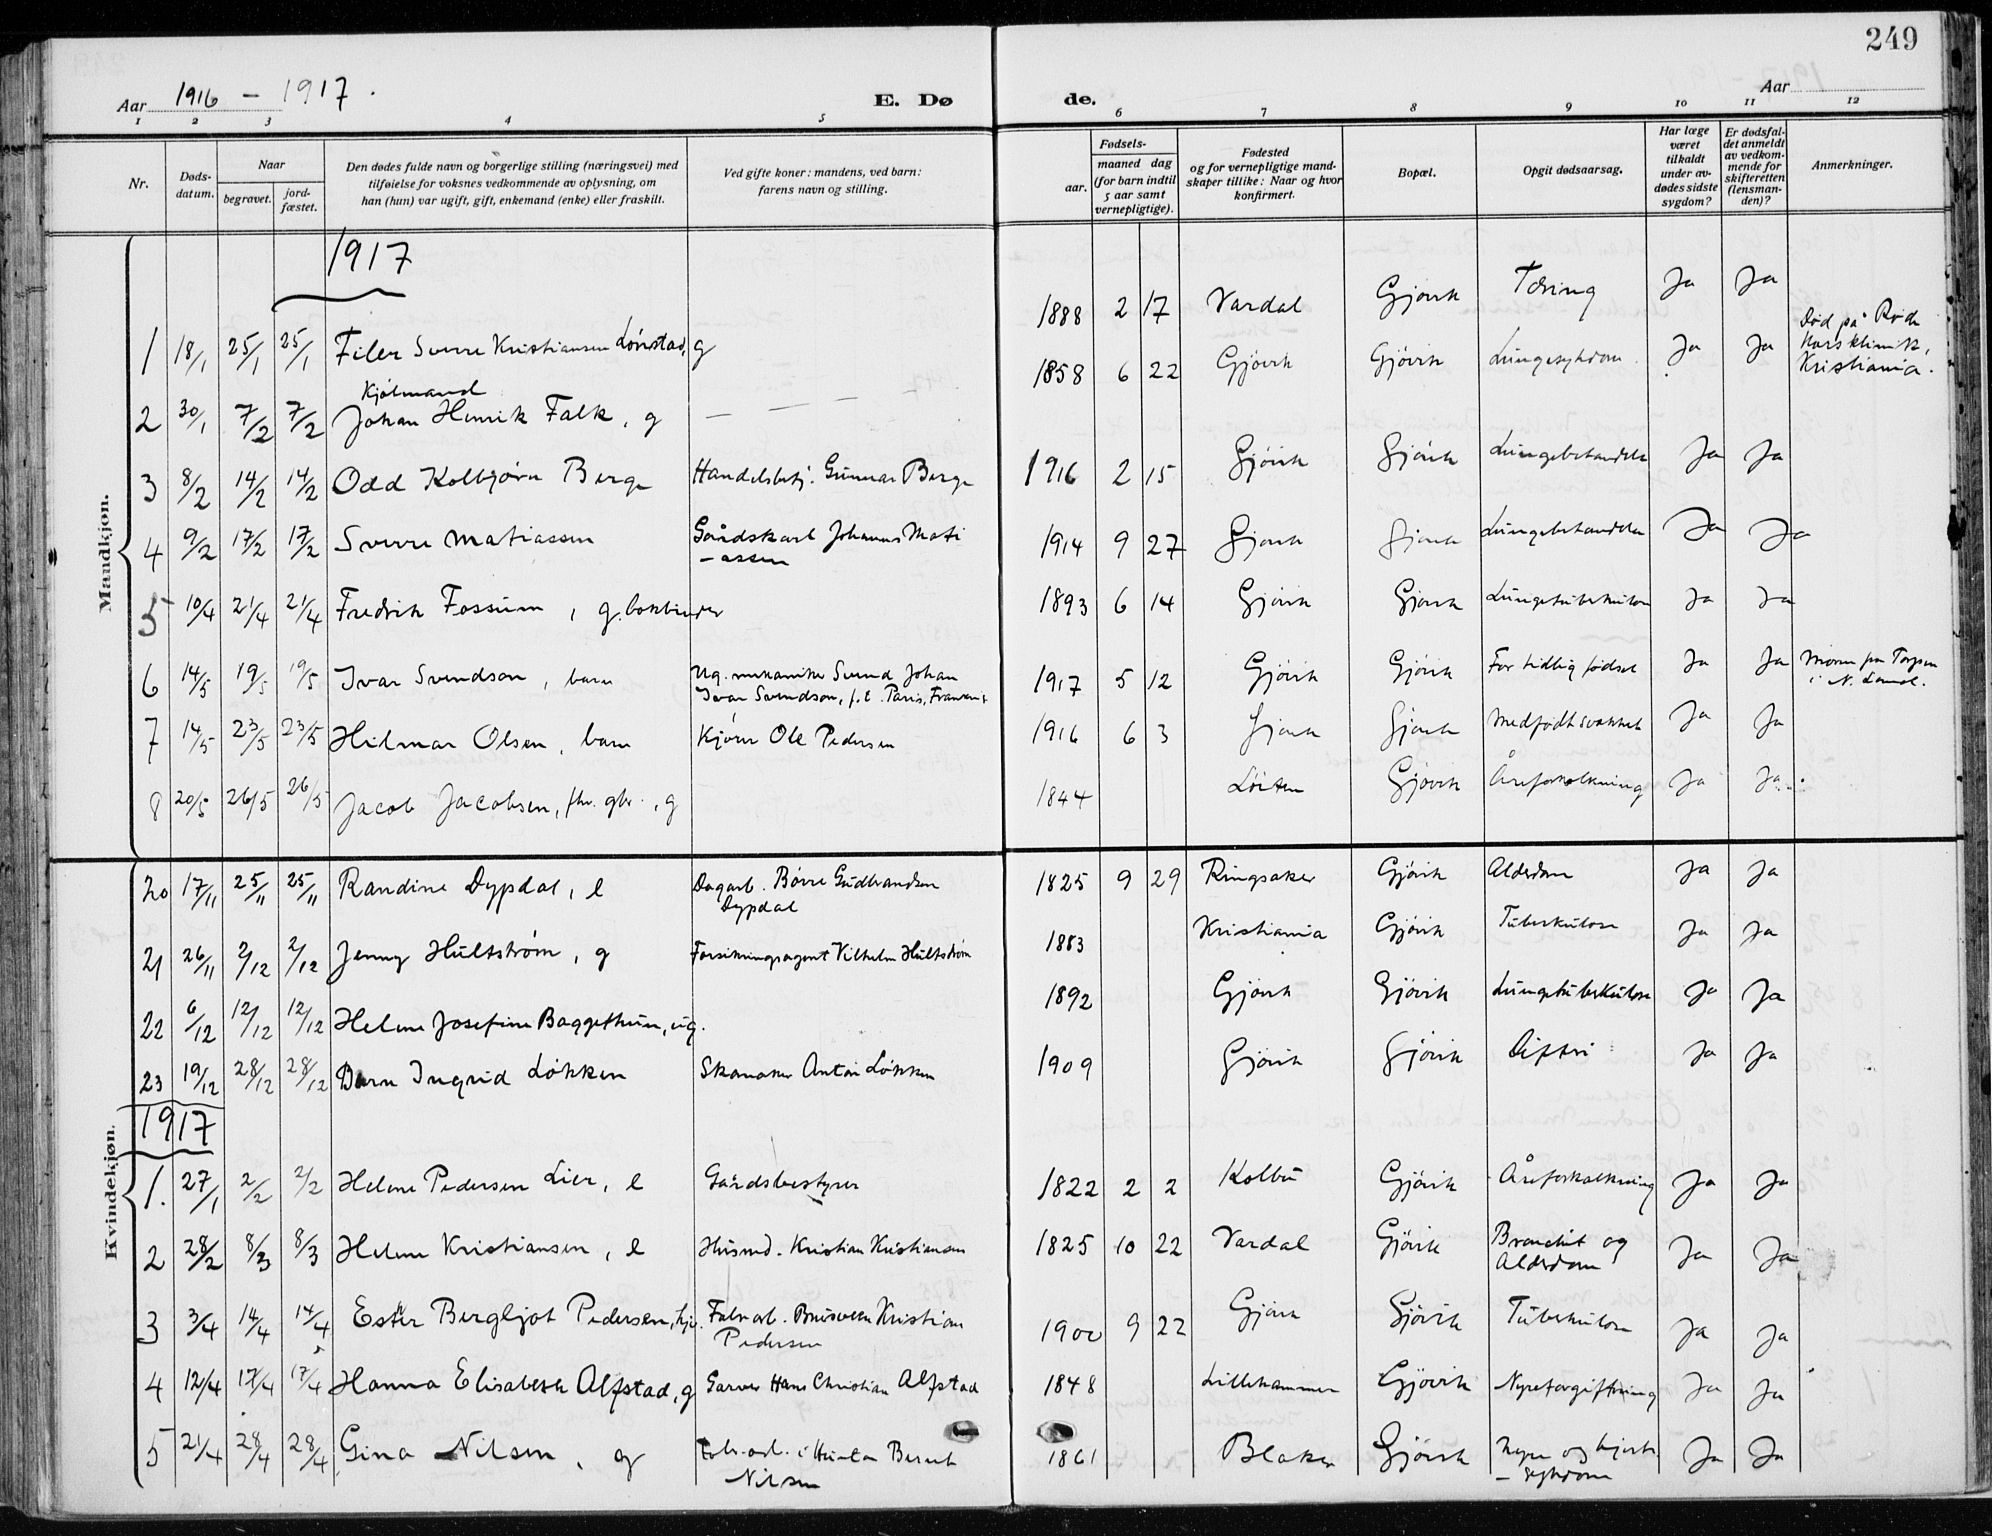 249
Aar 1916 – 1917.
E. Dø
de.
Aar
1 2 3 4 5 6 7 8 9 10 11 12
Nr.
Døds-
datum.
Naar
begravet.
jord-
fæstet.
Den dødes fulde navn og borgerlige stilling (næringsvei) med
tilføielse for voksnes vedkommende av oplysning, om
han (hun) var ugift, gift, enkemand (enke) eller fraskilt.
Ved gifte koner: mandens, ved barn:
farens navn og stilling.
Fødsels-
aar.
maaned dag
(for barn indtil
5 aar samt
vernepligtige).
Fødested
og for vernepligtige mand-
skaper tillike: Naar og hvor
konfirmert.
Bopæl.
Opgit dødsaarsag.
Har læge
været
tilkaldt
under av-
dødes sidste
sygdom?
Er dødsfal-
det anmeldt
av vedkom-
mende for
skifteretten
(lensman-
den)?
Anmerkninger.
Mandkjøn.
1917
1 18/1 25/1 25/1 Filer Sverre Kristiansen Lønstad, g 1888 2 17 Vardal Gjøvik Tæring Ja Ja
Død på Røde
Kors klinik,
Kristiania.
Kjølmand
2 30/1 7/2 7/2 Johan Henrik Falk, g — — — — 1858 6 22 Gjøvik Gjøvik Lungesykdom Ja Ja
3 8/2 14/2 14/2 Odd Kolbjørn Berge Handelsbetj. Gunnar Berge 1916 2 15 Gjøvik Gjøvik Ja Ja
4 9/2 17/2 17/2 Sverre Matiassen Gårdskarl Johannes Mati
– assen 1914 9 27 Gjøvik Gjøvik Ja Ja
5 10/4 21/4 21/4 Fredrik Fossum, g. bokbinder 1893 6 14 Gjøvik Gjøvik Lungetuberkulose Ja Ja
6 14/5 19/5 19/5 Ivar Svendson, barn Ug. mekaniker Svend Johan
Ivar Svendson, f.t. Paris, 1917 5 12 Gjøvik Gjøvik For tidlig fødsel Ja Ja Moren fra
i N. Land.
7 14/5 23/5 23/5 Hilmar Olsen, barn Kjører Ole Pedersen 1916 6 3 Gjøvik Gjøvik Medfødt svakhet Ja Ja
8 20/5 26/5 26/5 Jacob Jacobsen, fhv. gbr., g 1844 Løiten Gjøvik Åreforkalkning Ja Ja
Kvindekjøn.
20 17/11 25/11 25/11 Randine Dypdal, e Dagarb. Børre Gudbrandsen
Dypdal 1825 9 29 Ringsaker Gjøvik Alderdom Ja Ja
21 26/11 2/12 2/12 Jenny Hultstrøm, g Forsikringsagent Vilhelm Hultstrøm 1883 Kristiania Gjøvik Tuberkulose Ja Ja
22 6/12 12/12 12/12 Helene Josefine Baggethun, ug. 1892 Gjøvik Gjøvik Lungetuberkulose Ja Ja
23 19/12 28/12 28/12 Barn Ingrid Løkken Skomaker Anton Løkken 1909 Gjøvik Gjøvik Difteri Ja Ja
1917
1. 27/1 2/2 2/2 Helene Pedersen Lier, e Gårdsbestyrer 1822 2 2 Kolbu Gjøvik Åreforkalkning Ja Ja
2 28/2 8/3 8/3 Helene Kristiansen, e Husmd. Kristian Kristiansen 1825 10 22 Vardal Gjøvik Bronchit og
Alderdom Ja Ja
3 3/4 14/4 14/4 Ester Bergljot Pedersen, Fabrarb. Kristian
Pedersen 1900 9 22 Gjøvik Gjøvik Tuberkulose Ja Ja
4 12/4 17/4 17/4 Hanna Elisabeth Alfstad, g Garver Hans Christian Alfstad 1848 Lillehammer Gjøvik Nyreforgiftning Ja Ja
5 21/4 28/4 28/4 Gina Nilsen, g Fabr.arb. i Hunton Bernt
Nilsen 1861 Blaker Gjøvik Nyre og hjerte
– sykdom Ja Ja